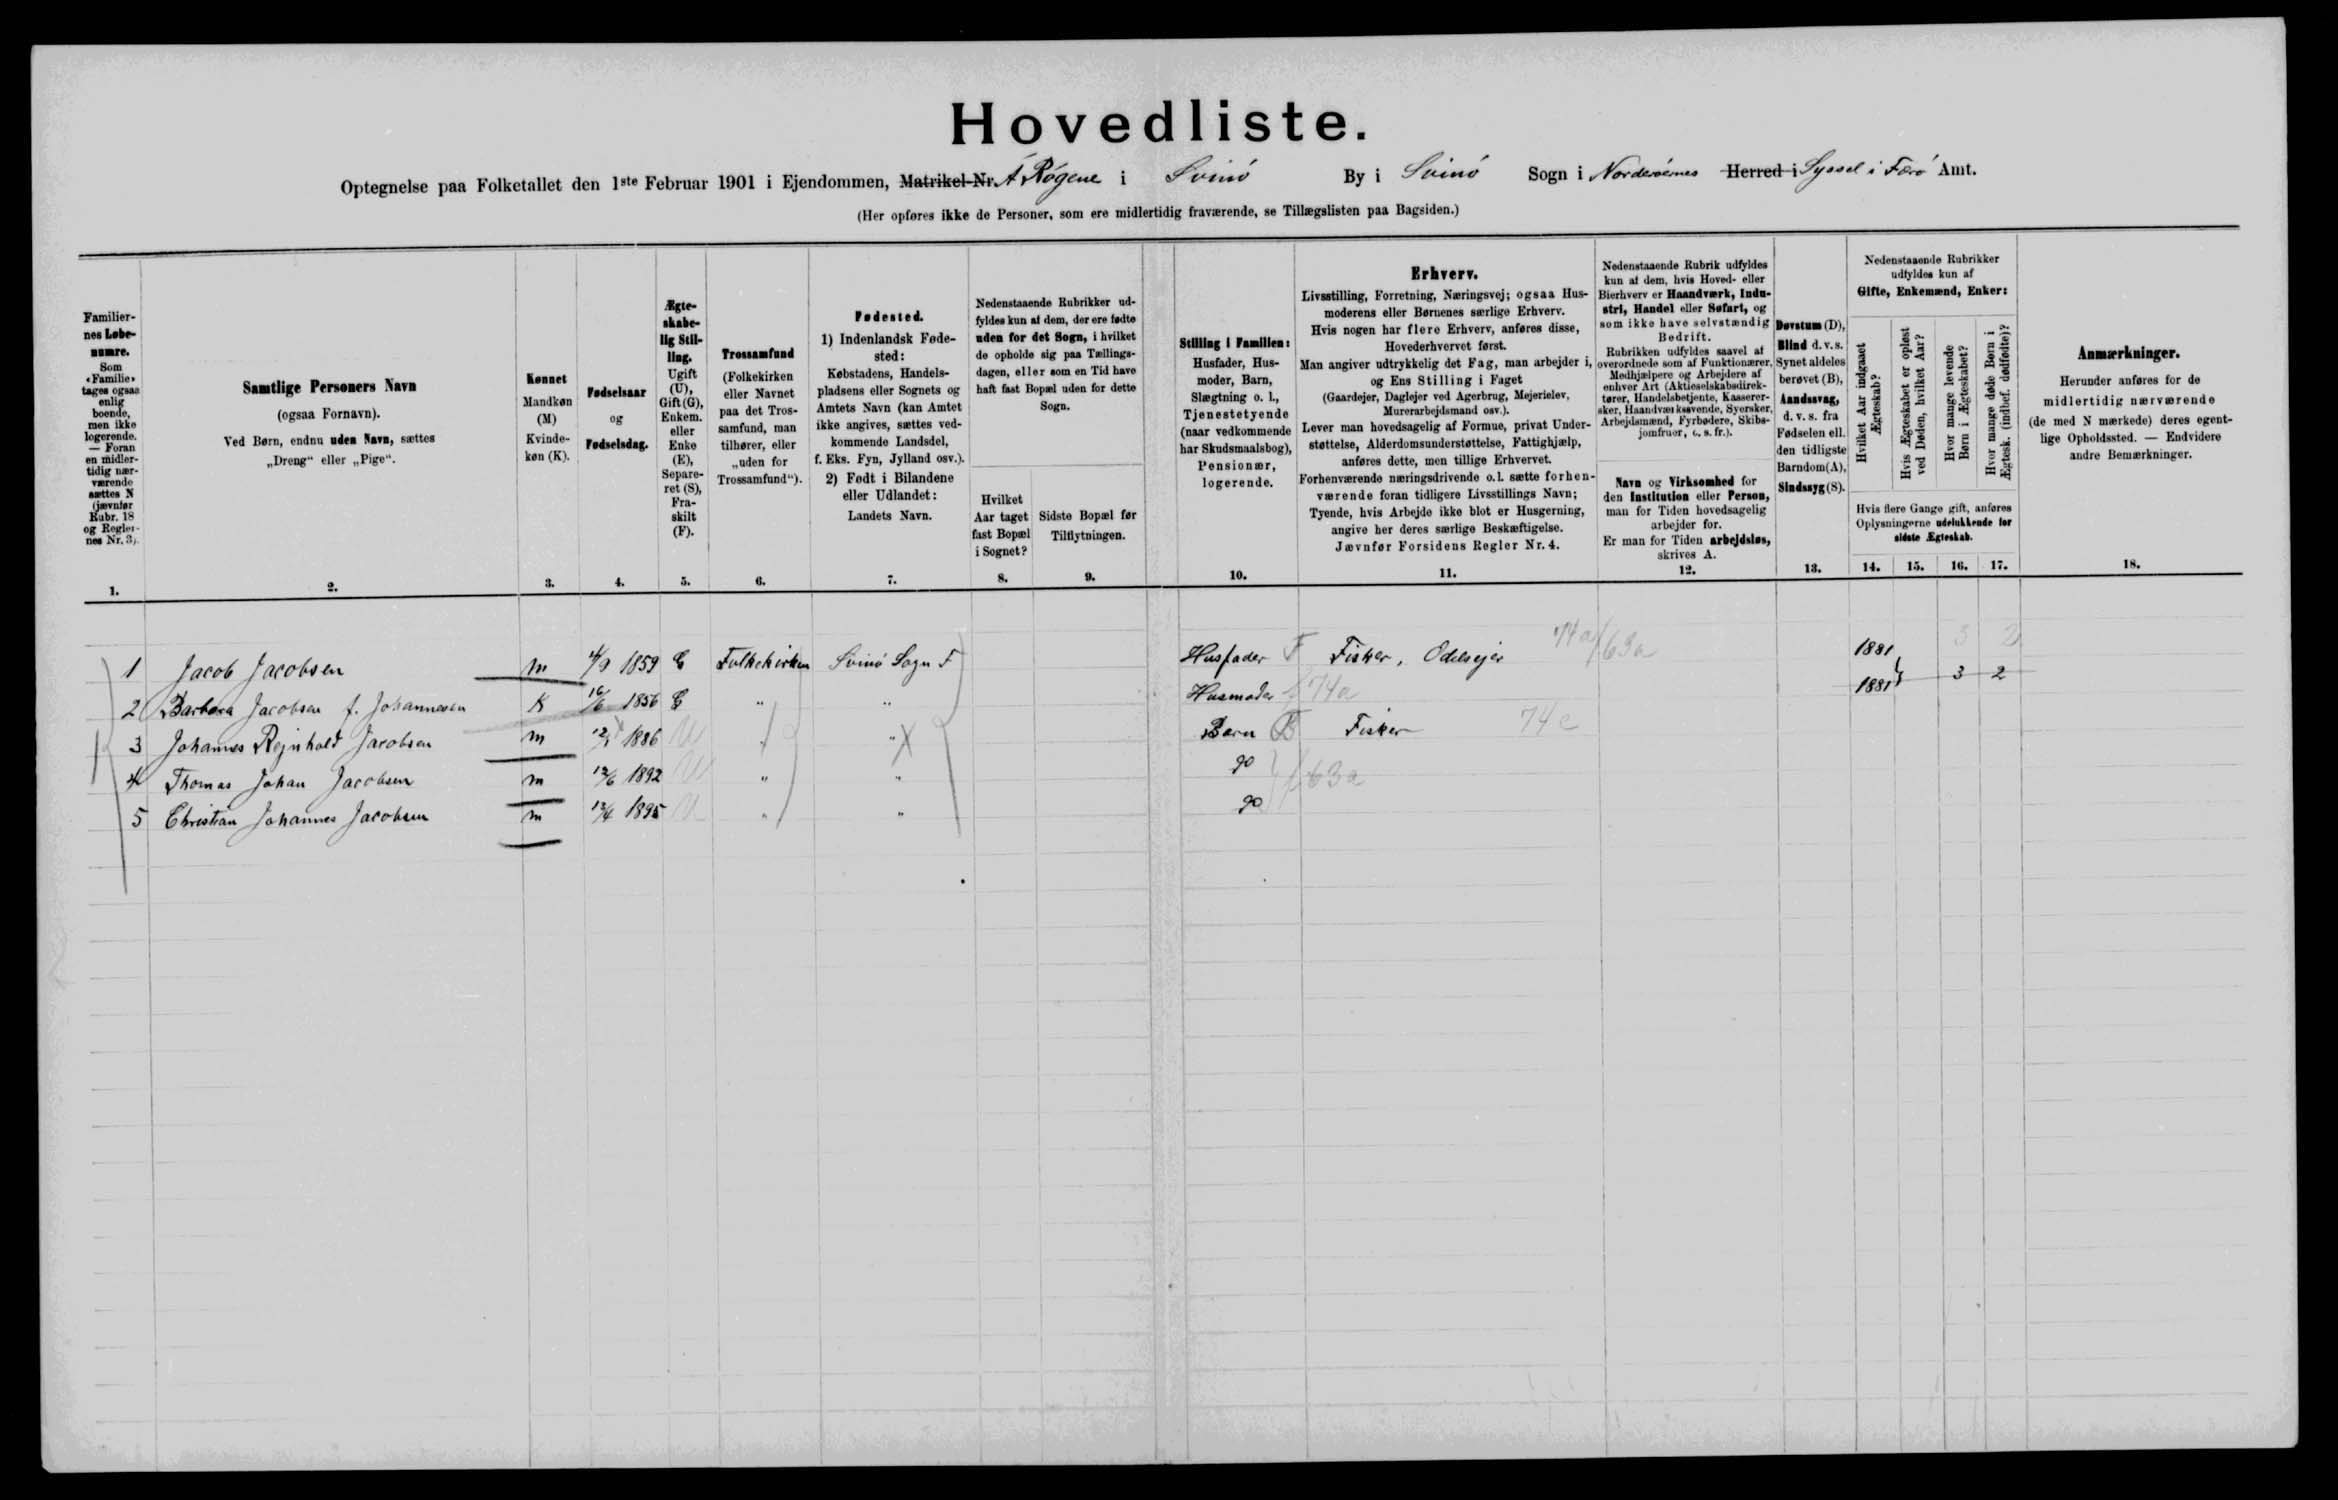 Hovedliste.
Optegnelse paa Folketallet den 1ste Februar 1901 i Ejendommen, Matrikel-Nr. Á Røgene i Svinö By i Svinö Sogn i Norderöernes Herred i Syssel i Færö Amt.
(Her opføres ikke de Personer, som ere midlertidig fraværende, se Tillægslisten paa Bagsiden.)
Familier-
nes Løbe-
numre.
Som
«Familie»
tages ogsaa
enlig
boende,
men ikke
logerende.
— Foran
en midler-
tidig nær-
værende
sættes N
(jævnfør
Rubr. 18
og Regler-
nes Nr. 3).
1.
Samtlige Personers Navn
(ogsaa Fornavn).
Ved Børn, endnu uden Navn, sættes
„Dreng“ eller „Pige“.
2.
Kønnet
Mandkøn
(M)
Kvinde-
køn (K).
3.
Fødselsaar
og
Fødselsdag.
4.
Ægte-
skabe-
lig Stil-
ling.
Ugift
(U),
Gift (G),
Enkem.
eller
Enke
(E),
Separe-
ret (S),
Fra-
skilt
(F).
5.
Trossamfund
(Folkekirken
eller Navnet
paa det Tros-
samfund, man
tilhører, eller
„uden for
Trossamfund“).
6.
Fødested.
1) Indenlandsk Føde-
sted:
Købstadens, Handels-
pladsens eller Sognets og
Amtets Navn (kan Amtet
ikke angives, sættes ved-
kommende Landsdel,
f. Eks. Fyn, Jylland osv.).
2) Født i Bilandene
eller Udlandet:
Landets Navn.
7.
Nedenstaaende Rubrikker ud-
fyldes kun af dem, der ere fødte
uden for det Sogn, i hvilket
de opholde sig paa Tællings-
dagen, eller som en Tid have
haft fast Bopæl uden for dette
Sogn.
Hvilket
Aar taget
fast Bopæl
i Sognet?
8.
Sidste Bopæl før
Tilflytningen.
9.
Stilling i Familien:
Husfader, Hus-
moder, Barn,
Slægtning o. l.,
Tjenestetyende
(naar vedkommende
har Skudsmaalsbog),
Pensionær,
logerende.
10.
Erhverv.
Livsstilling, Forretning, Næringsvej; ogsaa Hus-
moderens eller Børnenes særlige Erhverv.
Hvis nogen har flere Erhverv, anføres disse,
Hovederhvervet først.
Man angiver udtrykkelig det Fag, man arbejder i,
og Ens Stilling i Faget
(Gaardejer, Daglejer ved Agerbrug, Mejerielev,
Murerarbejdsmand osv.).
Lever man hovedsagelig af Formue, privat Under-
støttelse, Alderdomsunderstøttelse, Fattighjælp,
anføres dette, men tillige Erhvervet.
Forhenværende næringsdrivende o. l. sætte forhen-
værende foran tidligere Livsstillings Navn;
Tyende, hvis Arbejde ikke blot er Husgerning,
angive her deres særlige Beskæftigelse.
Jævnfør Forsidens Regler Nr. 4.
11.
Nedenstaaende Rubrik udfyldes
kun af dem, hvis Hoved- eller
Bierhverv er Haandværk, Indu-
stri, Handel eller Søfart, og
som ikke have selvstændig
Bedrift.
Rubrikken udfyldes saavel af
overordnede som af Funktionærer,
Medhjælpere og Arbejdere af
enhver Art (Aktieselskabsdirek-
tører, Handelsbetjente, Kasserer-
sker, Haandværkssvende, Syersker,
Arbejdsmænd, Fyrbødere, Skibs-
jomfruer, o. s. fr.).
Navn og Virksomhed for
den Institution eller Person,
man for Tiden hovedsagelig
arbejder for.
Er man for Tiden arbejdsløs,
skrives A.
12.
Døvstum (D),
Blind d. v. s.
Synet aldeles
berøvet (B),
Aandssvag,
d. v. s. fra
Fødselen ell.
den tidligste
Barndom (A),
Sindssyg (S).
13.
Nedenstaaende Rubrikker
udfyldes kun af
Gifte, Enkemænd, Enker:
Hvilket Aar indgaaet
Ægteskab?
Hvis Ægteskabet er opløst
ved Døden, hvilket Aar?
Hvor mange levende
Børn i Ægteskabet?
Hvor mange døde Børn i
Ægtesk. (indbef. dødfødte)?
Hvis flere Gange gift, anføres
Oplysningerne udelukkende for
sidste Ægteskab.
14. 15. 16. 17.
Anmærkninger.
Herunder anføres for de
midlertidig nærværende
(de med N mærkede) deres egent-
lige Opholdssted. — Endvidere
andre Bemærkninger.
18.
74a/63a 3 2
1 Jacob Jacobsen m 1859 G Folkekirken Svinö Sogn F Husfader F Fisker, Odelsejer 1881
2 Barbara Jacobsen f. Johannesen K 16/6 1856 G „ „ Husmoder 74a 1881 3 2
3 Johannes Rejnhold Jacobsen m 1886 U „ „ Barn B Fisker 74c
4 Thomas Johan Jacobsen m 12/6 1892 U „ „ do 63a
5 Christian Johannes Jacobsen m 12/4 1895 U „ „ do